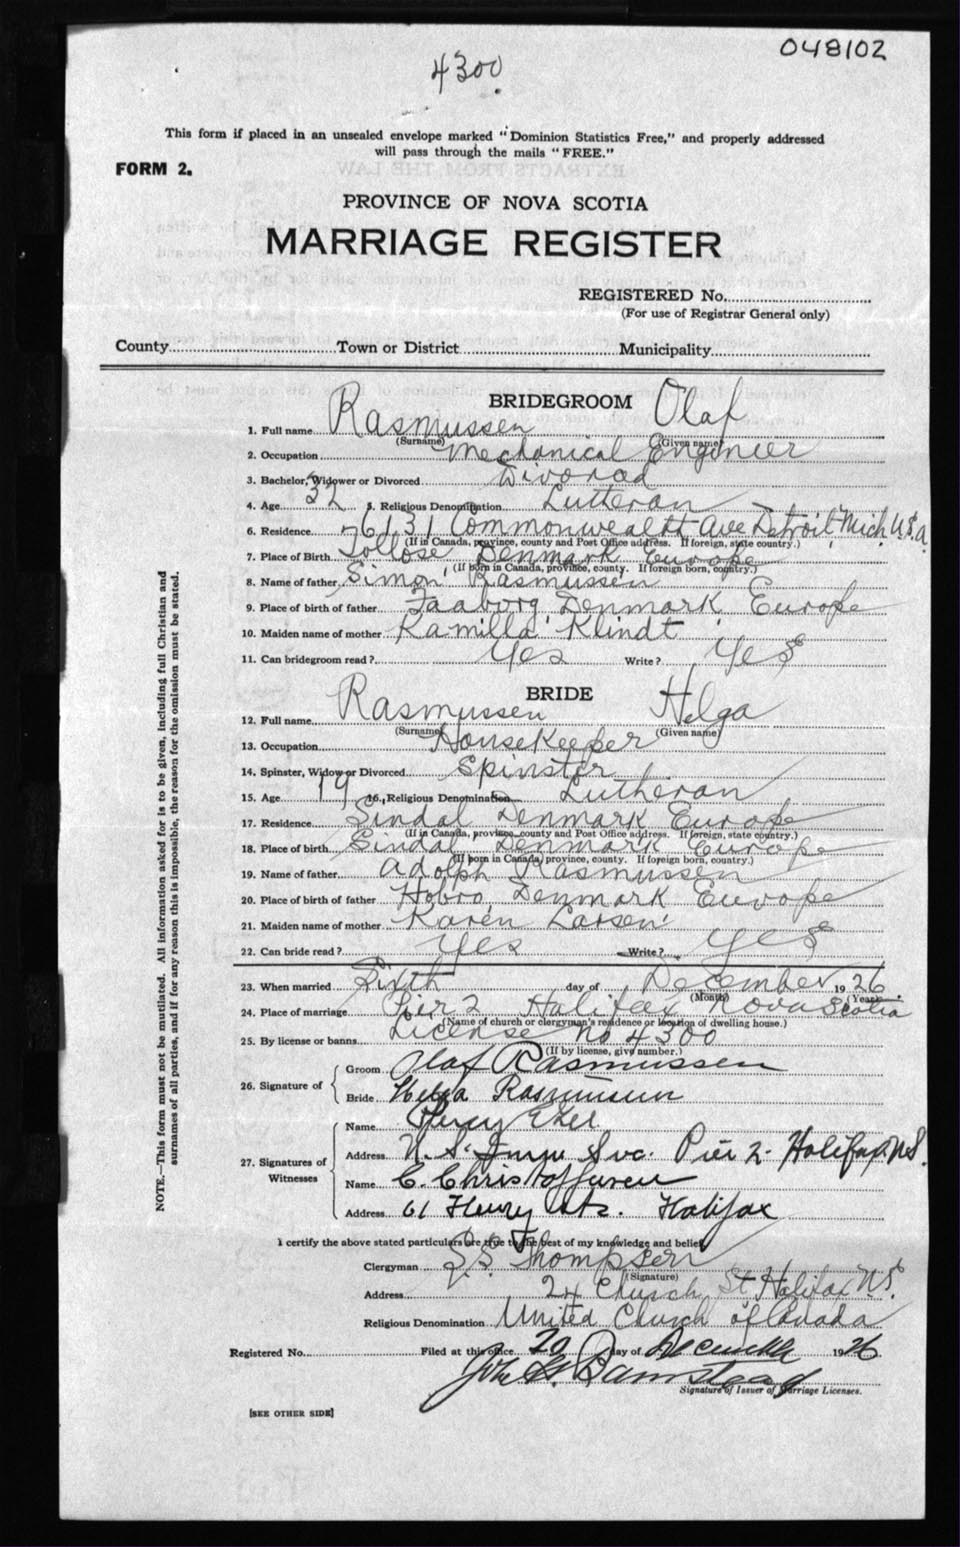 048102
4300
This form if placed in an unsealed envelope marked "Dominion Statistics Free," and properly addressed
will pass through the mails "FREE."
FORM 2.
PROVINCE OF NOVA SCOTIA
MARRIAGE REGISTER
REGISTERED No.
(For use of Registrar General only)
County Town or District Municipality
BRIDEGROOM
1. Full name Rasmussen Olaf
(Surname) (Given name)
2. Occupation Mechanical Engineer
3. Bachelor, Widower or Divorced Divorced
4. Age 32 5. Religious Denomination Lutheran
6. Residence 6131 Commonwealth Ave Detroit Mich U.S.a
(If in Canada, province, county and Post Office address. If foreign, state country.)
7. Place of Birth Tollose Denmark Europe
(If born in Canada, province, county. If foreign born, country.)
8. Name of father Simon Rasmussen
9. Place of birth of father Faaborg Denmark Europe
10. Maiden name of mother Kamilla Klindt
11. Can bridegroom read? Yes Write? Yes
BRIDE
12. Full name Rasmussen Helga
(Surname) (Given name)
13. Occupation Housekeeper
14. Spinster, Widow or Divorced Spinster
15. Age 19 16. Religious Denomination Lutheran
17. Residence Sindal Denmark Europe
(If in Canada, province, county and Post Office address. If foreign, state country.)
18. Place of birth Sindal Denmark Europe
(If born in Canada, province, county. If foreign born, country.)
19. Name of father Adolph Rasmussen
20. Place of birth of father Hobro Denmark Europe
21. Maiden name of mother Karen Larsen
22. Can bride read? Yes Write? Yes
23. When married Sixth day of December 1926
(Month) (Year)
24. Place of marriage Pier 2 Halifax Nova Scotia
(Name of church or clergyman's residence or location of dwelling house.)
25. By license or banns License No 4300
(If by license, give number.)
26. Signature of
Groom Olaf Rasmussen
Bride Helga Rasmussen
27. Signatures of Witnesses
Name Percy
Address N.S. Svc. Pier 2. Halifax N.S.
Name C. Christoffersen
Address 61 Henry Sts. Halifax
I certify the above stated particulars are true to the best of my knowledge and belief.
Clergyman Thompson
(Signature)
Address 24 Church St Halifax N.S.
Religious Denomination United Church of Canada
Registered No. Filed at this office 20 day of December 1926
John
Signature of Issuer of Marriage Licenses.
[SEE OTHER SIDE]
NOTE.—This form must not be mutilated. All information asked for is to be given, including full Christian and
surnames of all parties, and if for any reason this is impossible, the reason for the omission must be stated.